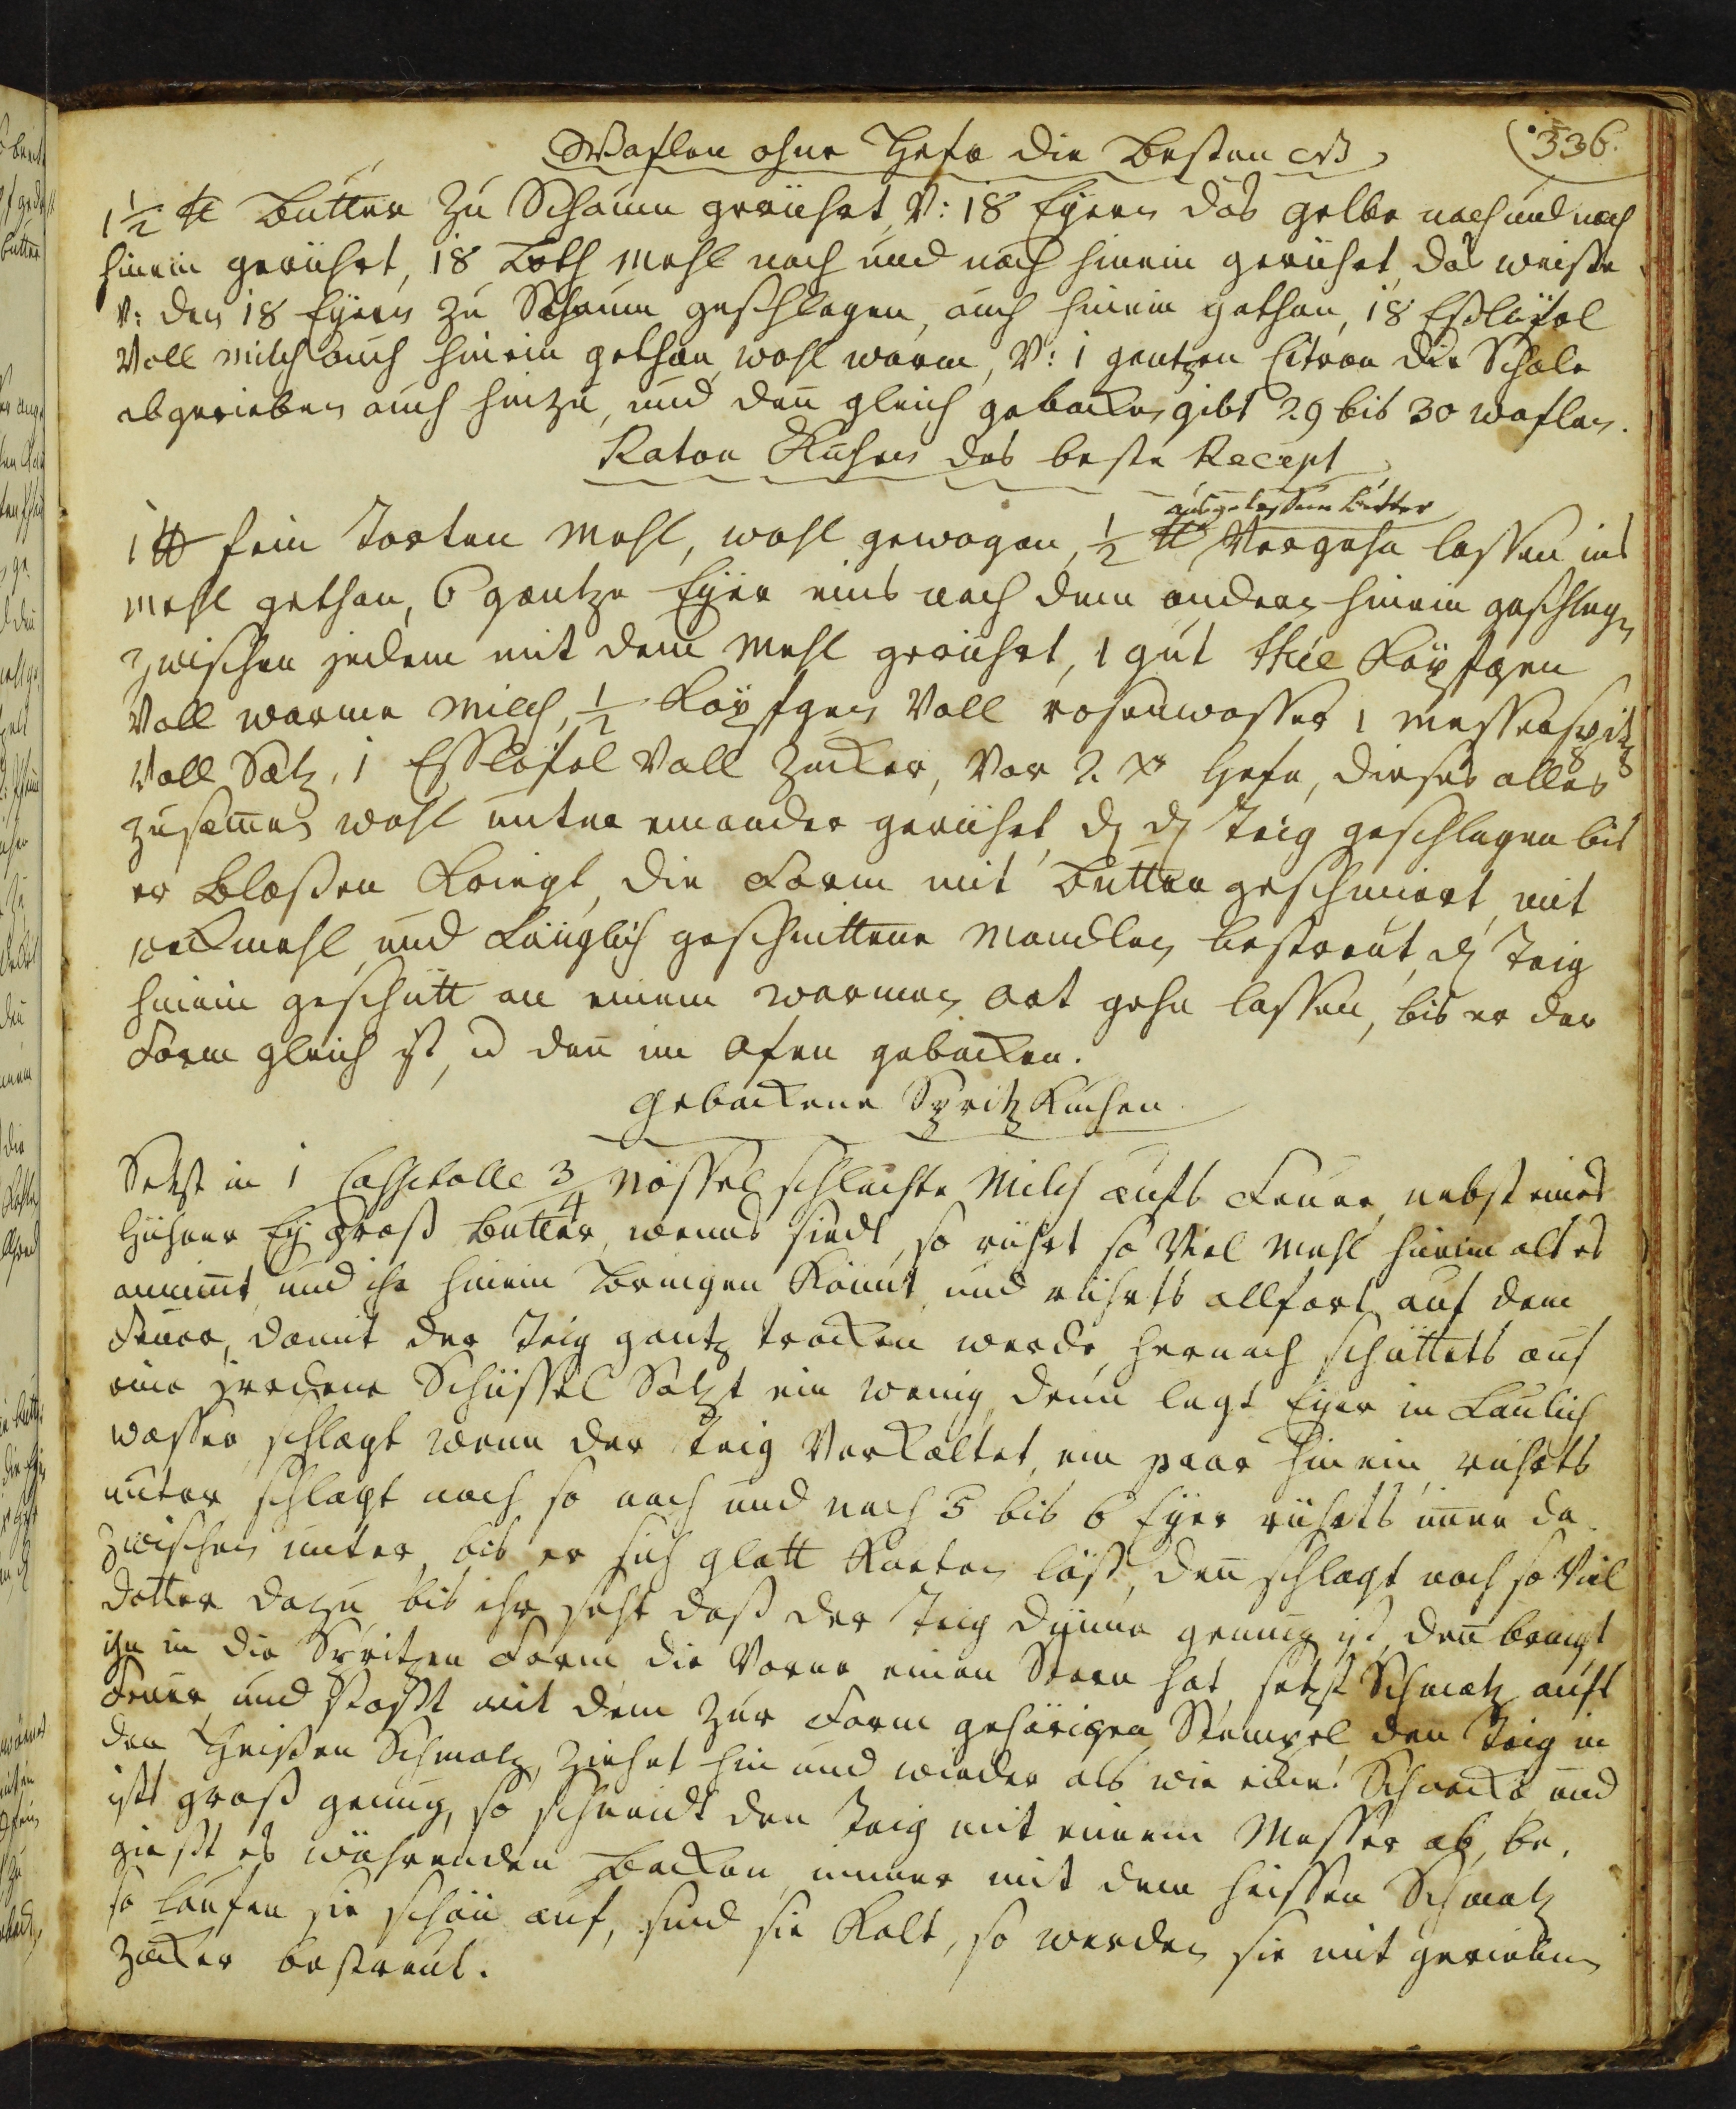 336.
Waflen ohne Hefe die besten NB
1 1/2 ℔ Butter zu Schaum gerührt, V: 18 Eyern das gelbe nach und nach
hinein gerührt, 18 Loth Mehl nach und nach hinein gerührt, das weisse
v: den 18 Eyern zu Schaum geschlagen, auch hinein gethan, 18 Eßlöfel
Voll Milch auch hinein gethan, wohl warm, V: 1 gantzen Citron die Schale
abgerieben auch hinzu, und den̅ gleich gebacken, gibt 29 bis 30 waflen.
Raton Kuchen das beste Recept
ausgelassenen Butter
1 ℔ fein Torten Mehl, wohl gewogen, 1/2 ℔ Vergehn lassen ins
Mehl gethan, 6 gantze Eyer eins nach dem andern hinein geschlagen
zwischen jedem mit dem Mehl gerührt, 1 gut thée Köpfgen
Voll warme Milch, 1/2 Köpfgen Voll rosenwasser 1 Messerspitz
Voll Saltz, 1 Esslöfel Voll Zucker, Vor 2 xr Hefe, dieses alles
zusam̅en wohl unter einander gerührt, den Teig geschlagen bis
er Blassen Kriegt, die Form mit Butter geschmiert, mit
weckmehl und Länglich geschnittene Mandlen bestreut, den Teig
hinein geschütt an einem warmen Ort gehn lassen, bis er der
Form gleich ist, u den̅ im Ofen gebacken.
Gebackene Spritz Kuchen
Setzt in 1 Casserolle 3/4 Nössel schlechte Milch aufs Feuer, nebst eines
Hühner Ey groß Butter, wenns siedt, so rührt so Viel Mehl hinein als es
annim̅t, und ihr hinein Bringen Könnt, und rührts allfort auf dem
Feuer, damit der Teig gantz trocken werde, hernach schüttets auf
eine irrdene Schüssel Saltzt ein wenig, denn legt Eyer in Laulich
wasser, schlagt wenn der Teig Verkaltet, ein paar hinein, rührts
unter, schlagt noch so nach und nach 5 bis 6 Eyer rührts im̅er da
zwischen unter, bis er sich glatt Kneten läst, den̅ schlagt noch so Viel
dotter dazu, bis ihr seht daß der Teig dünne genung ist, den̅ bringt
ihn in die Spritzen Form die Vorne einen Stern hat, setzt Schmaltz aufs
Feuer, und stosst mit dem zur Form gehörigen Stempel, den Teig in
den Heissen Schmaltz, ziehet hin und wieder als wie eine Schnecke und
ists groß genung, so schneidt den Teig mit einem Messer ab, be,
giesst es währenden Backen immer mit dem heissen Schmaltz
so Laufen sie schön auf, sind sie Kalt, so werden sie mit geriebenen
Zucker bestreut.